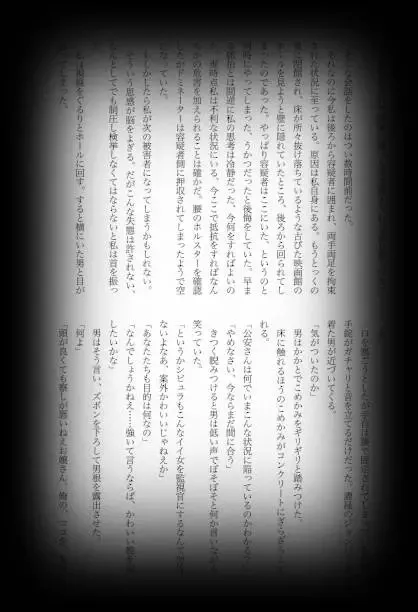 な会話をしたのはつい数時間前だった。
そんなのに今私は後ろから容疑者に囲まれ、両手両足を拘束
され状況に至っている。原因は私自身にある。もうとっくの
に閉館され、床が所々抜け落ちているような古びた映画館の
ホールを見ようと壁に隠れていたところ、後ろから回られてし
まったのであった。やっぱり容疑者はここにいた、というのと
同時にやってしまった、うかつだったと後悔をしていた。早ま
る心臓とは間逆に私の思考は冷静だった。今何をすればよいの
現時点私は不利な状況にいる、今ここで抵抗をすればなん
らかの危害を加えられることは確かだ。腰のホルスターを確認
したがドミネーターは容疑者側に押収されてしまったようで空
になっていた。
しかしたら私が次の被害者になってしまうかもしれない。
という思惑が脳をよぎる。だがこんな失態は許されない、
んとしてでも制圧し検挙しなくてはならないと私は首を振っ
私は視線をぐるりとホールに回す。すると横にいた男と目が
ってしまった。
手錠がガチャリと音を立てるだけだった。
着た男が近づいてくる。
「気がついたのか」
男はかかとでこめかみをギリギリと踏みつけた。
床に触れるほうのこめかみがコンクリートに
れる。
「公安さんは何でいまこんな状況に陥っているのかわかる
「やめなさい、今ならまだ間に合う」
きつく睨みつけると男は低い声でぼそぼそと何か言いながら
笑っていた。
「というかシビュラもこんなイイ女を監視官にするなんて
ないよなあ、案外かわいいじゃねえか」
「あなたたちも目的は何なの」
「なんでしょうかねえ……強いて言うならば、かわいい
したいかな」
男はそう言い、ズボンを下ろして男根を露出させた。
「何よ」
「頭が良くても察しが悪いねえお嬢さん。俺の、ココを